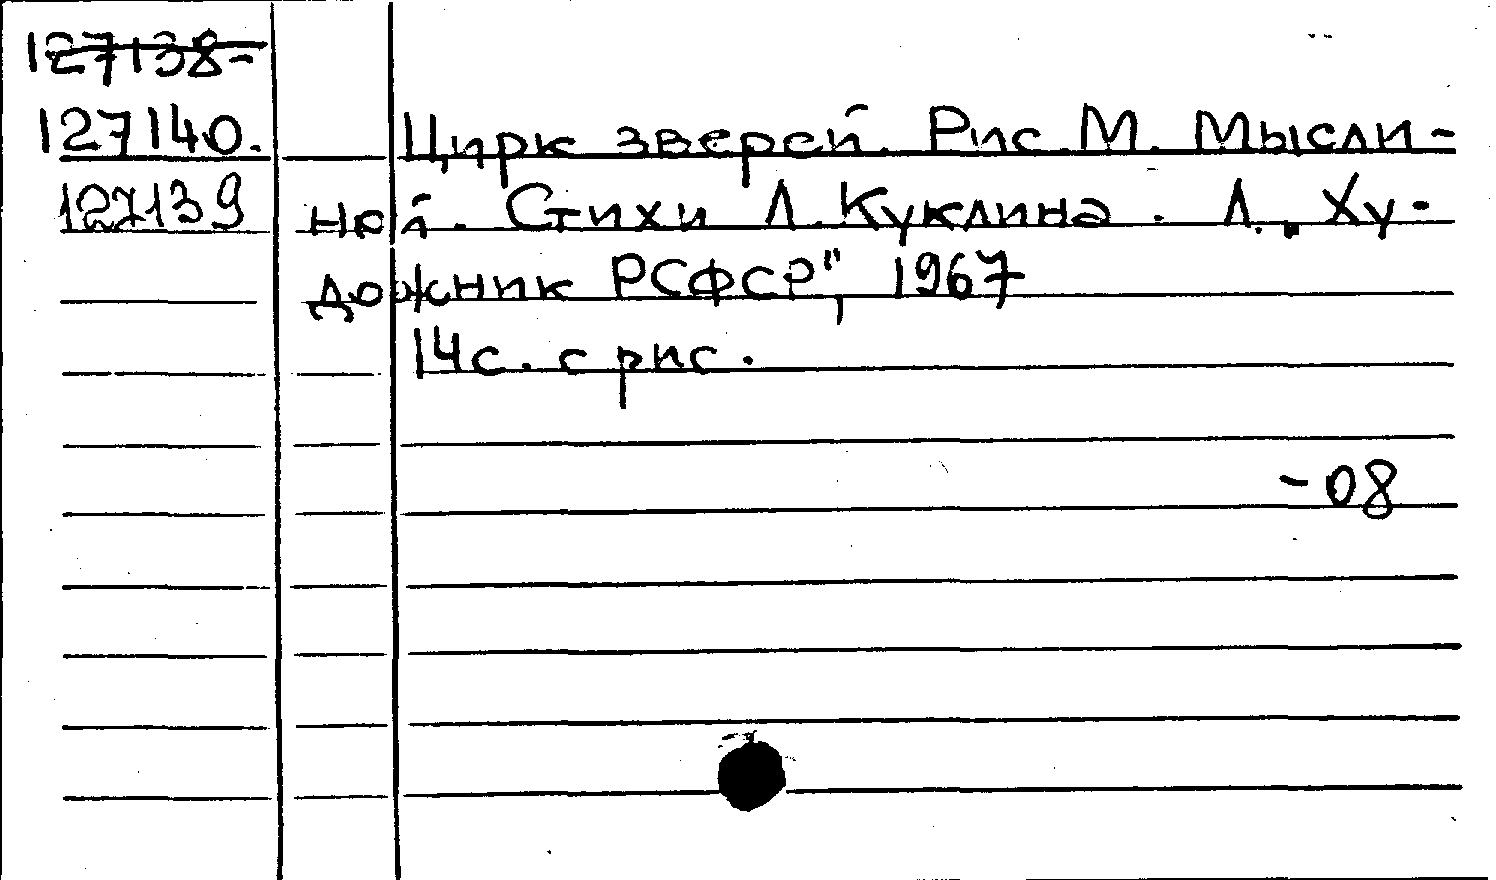 127138-
127140. Цирк зверей. Рис. М. Мысли-
127139 ной. Стихи Л. Куклина. Л., „Ху-
дожник РСФСР", 1967
14с. с рис.
-08